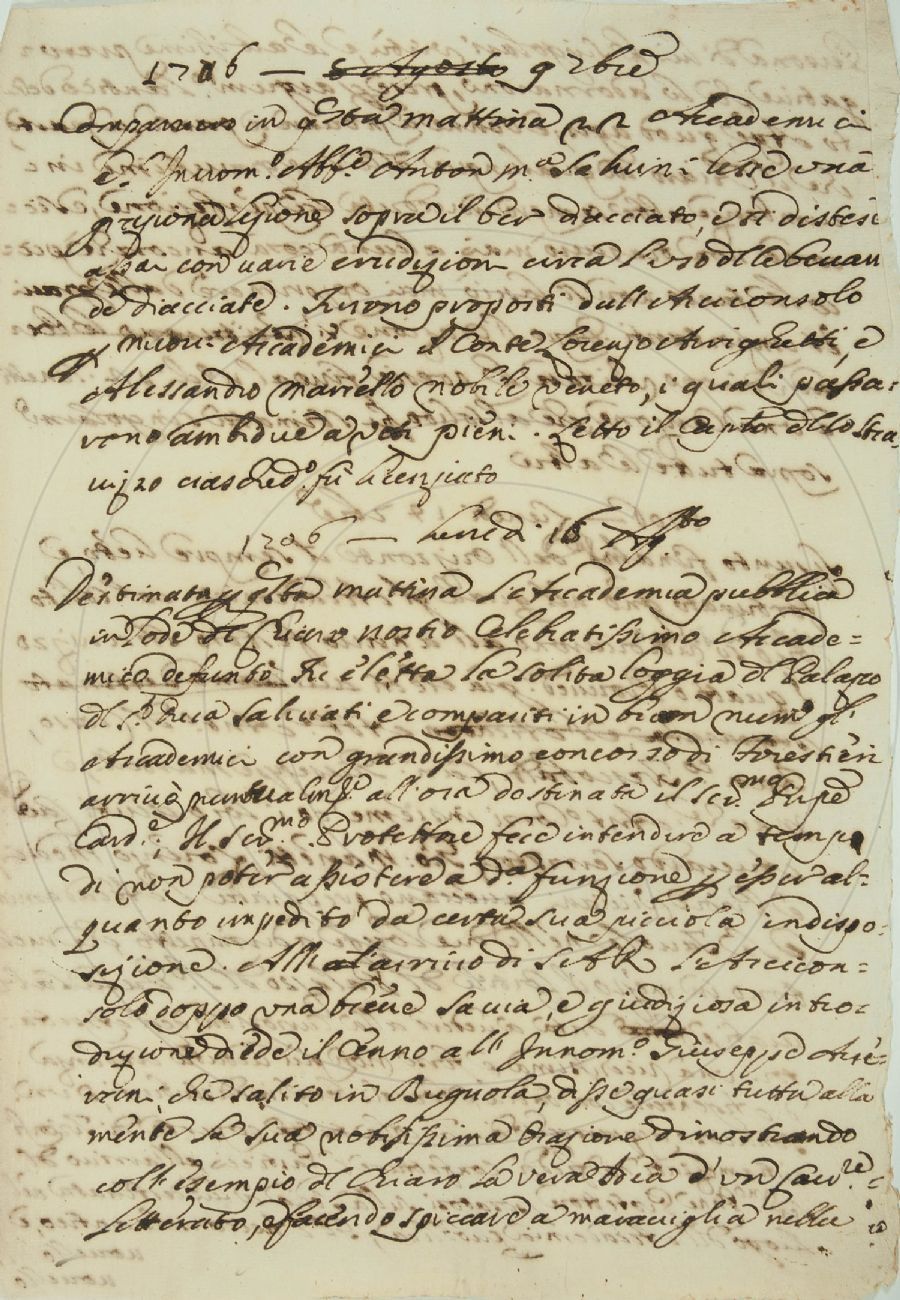 1706 — 5 Agosto 9 7bre
Comparvero in q.sta mattina 22 Academici
e l'Innom.º Ab.e Anton M.a Salvini lesse una
graziosa lezione sopra il ber diacciato, e si distese
assai con varie erudizioni circa l'uso dlle bevan
de diacciate. Furono proposti dall'Arciconsolo
p nuovi Academici il Conte Lorenzo Arrighetti, e
Alessandro Marcello nobile Veneto, i quali passa-
rono ambidue a voti pieni. Letto il Capto dllo stra
vizzo ciasched.º fù licenziato
1706 — Lunedi 16 Agto
Destinata p q.sta mattina l'Academia pubblica
in lode dl Chiaro nostro Celebratissimo Accade-
mico defunto fu eletta la solita loggia dl Palazzo
dl S. Duca Salviati, e compariti in buon num.º gl'
Academici con grandissimo concorso di Forestieri
arrivò puntualm.e all'ora destinata il Ser.mo Prnpe
Card.e, Il Ser.mo Protettore fece intendere a tempo
di non poter assistere a d.a funzione p esser al-
quanto impedito da certa sua piccola indispo-
sizione. All'arrivo di S. A. R. l'Arcicon-
solo doppo una breve savia, e giudiziosa intro-
duzione diede il Cenno all'Innom.º Giuseppe Ave-
rani, che salito in Bugnola, disse quasi tutta alla
mente la sua nobilissima orazione dimostrando
coll'esempio dl Chiaro la vera Idea d'un Cav.re
Letterato, e facendo spiccare a maraviglia nelle